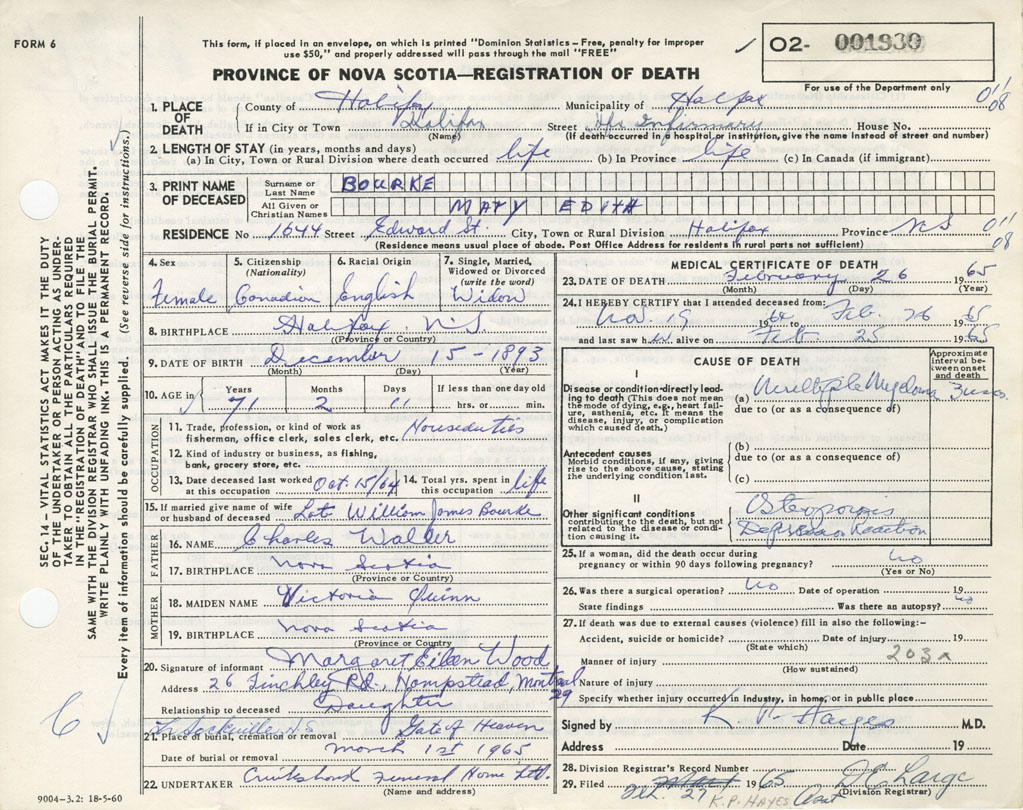 FORM 6
This form, if placed in an envelope, on which is printed "Dominion Statistics – Free, penalty for improper
use $50," and properly addressed will pass through the mail "FREE"
✓ O2- 001930
For use of the Department only
PROVINCE OF NOVA SCOTIA—REGISTRATION OF DEATH
01
08
SEC. 14 – VITAL STATISTICS ACT MAKES IT THE DUTY
OF THE UNDERTAKER OR PERSON ACTING AS UNDER-
TAKER TO OBTAIN ALL THE PARTICULARS REQUIRED
IN THE "REGISTRATION OF DEATH" AND TO FILE THE
SAME WITH THE DIVISION REGISTRAR WHO SHALL ISSUE THE BURIAL PERMIT.
WRITE PLAINLY WITH UNFADING INK. THIS IS A PERMANENT RECORD.
Every item of information should be carefully supplied. (See reverse side for instructions.)
1. PLACE OF DEATH County of Halifax Municipality of Halifax
If in City or Town Halifax (Name) Street Hfx Infirmary House No.
(If death occurred in a hospital or institution, give the name instead of street and number)
2. LENGTH OF STAY (in years, months and days)
(a) In City, Town or Rural Division where death occurred life (b) In Province life (c) In Canada (if immigrant)
3. PRINT NAME OF DECEASED Surname or Last Name BOURKE
All Given or Christian Names MARY EDITH
RESIDENCE No 1644 Street Edward St. City, Town or Rural Division Halifax Province N S 01
08
(Residence means usual place of abode. Post Office Address for residents in rural parts not sufficient)
4. Sex Female
5. Citizenship (Nationality) Canadian
6. Racial Origin English
7. Single, Married, Widowed or Divorced (write the word) Widow
8. BIRTHPLACE Halifax N.S.
(Province or Country)
9. DATE OF BIRTH December 15 - 1893
(Month) (Day) (Year)
10. AGE in Years 71 Months 2 Days 11 If less than one day old hrs. or min.
OCCUPATION
11. Trade, profession, or kind of work as Houseduties
fisherman, office clerk, sales clerk, etc.
12. Kind of industry or business, as fishing,
bank, grocery store, etc.
13. Date deceased last worked at this occupation Oct. 15/64 14. Total yrs. spent in this occupation life
15. If married give name of wife or husband of deceased Late William James Bourke
FATHER
16. NAME Charles Waller
17. BIRTHPLACE Nova Scotia
(Province or Country)
MOTHER
18. MAIDEN NAME Victoria Quinn
19. BIRTHPLACE Nova Scotia
(Province or Country)
20. Signature of informant Margaret Eileen Wood
Address 26 Finchley Rd., Hampstead, Montreal 29
Relationship to deceased Daughter
Sackville N.S.
21. Place of burial, cremation or removal Gate of Heaven
Date of burial or removal March 1st 1965
22. UNDERTAKER Cruikshank Funeral Home Ltd.
(Name and address)
9004-3.2: 18-5-60
MEDICAL CERTIFICATE OF DEATH
23. DATE OF DEATH February 26 1965
(Month) (Day) (Year)
24. I HEREBY CERTIFY that I attended deceased from:
Nov. 19 1964 to Feb. 26 1965
and last saw her alive on Feb. 25 1965
CAUSE OF DEATH
Approximate interval between onset and death
I
Disease or condition directly leading to death (This does not mean the mode of dying, e.g., heart failure, asthenia, etc. It means the disease, injury, or complication which caused death.)
(a) Multiple Myeloma
due to (or as a consequence of)
Antecedent causes
Morbid conditions, if any, giving rise to the above cause, stating the underlying condition last.
(b)
due to (or as a consequence of)
(c)
II
Other significant conditions contributing to the death, but not related to the disease or condition causing it.
Osteoporosis
Depression Reaction
25. If a woman, did the death occur during pregnancy or within 90 days following pregnancy? no
(Yes or No)
26. Was there a surgical operation? no Date of operation 19
State findings Was there an autopsy? no
27. If death was due to external causes (violence) fill in also the following:-
Accident, suicide or homicide? Date of injury 19
(State which)
203x
Manner of injury
(How sustained)
Nature of injury
Specify whether injury occurred in Industry, in home, or in public place
Signed by K. P. Hayes M.D.
Address Date 19
28. Division Registrar's Record Number
29. Filed 27 1965
K.P. HAYES
(Division Registrar)